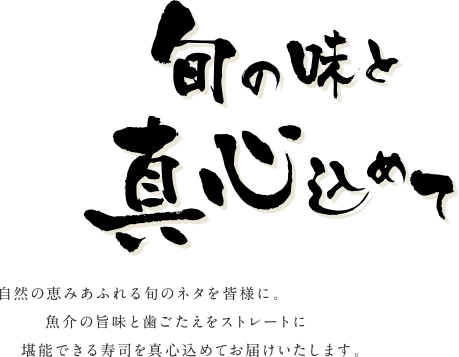 旬の味と
真心込めて
自然の恵みあふれる旬のネタを皆様に。
魚介の旨味と歯ごたえをストレートに
堪能できる寿司を真心込めてお届けいたします。